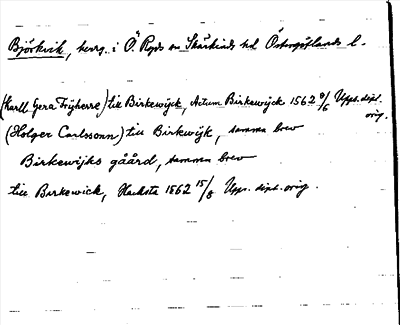 Björkvik, herrg. i Ö. Ryds sn Skärkinds hd Östergötlands l.
(Karll Gera Frijherre) till Birkewijck, Actum Birkewijck 1562 9/6 Upps. dipl. orig.
(Holger Carlssonn) till Birkwijk, samma brev
Birkewijks gåård, samma brev
till Barkewick, Hacksta 1562 15/8 Upps. dipl. orig.